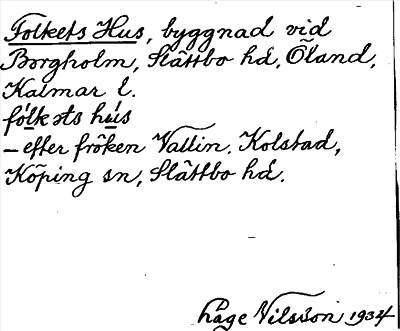 Folkets Hus, byggnad vid
Borgholm, Slättbo hd, Öland,
Kalmar l.
fólkəts hús
– efter fröken Vallin. Kolstad,
Köping sn, Slättbo hd.
Åge Nilsson 1934